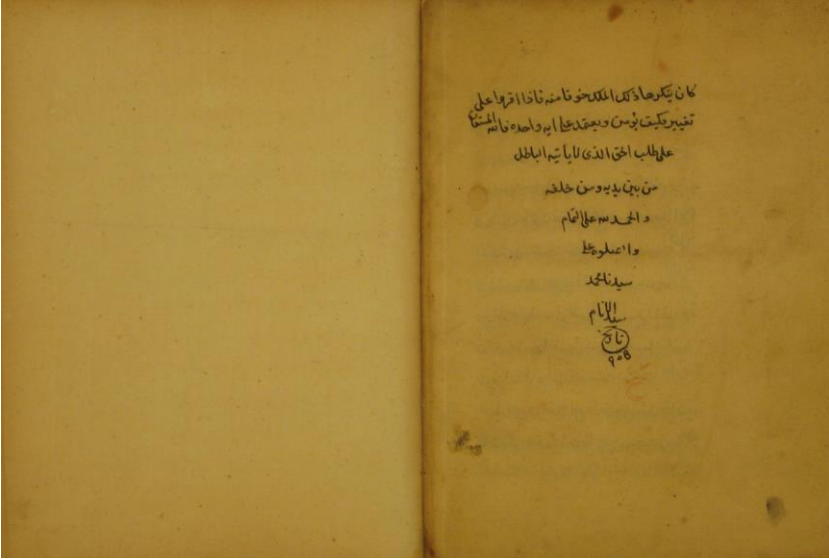 كان ينكر هاذلك الملك خوفا منه فاذا اقروا على
تغيير فكيف يؤمن ويعتمد على ايه واحده فالله المستعان
على طلب الحق الذى لا ياتيه الباطل
من بين يديه ومن خلفه
والحمد لله على التمام
والصلوه على
سيدنا محمد
سيد الانام
تاريخ
٩٠٥